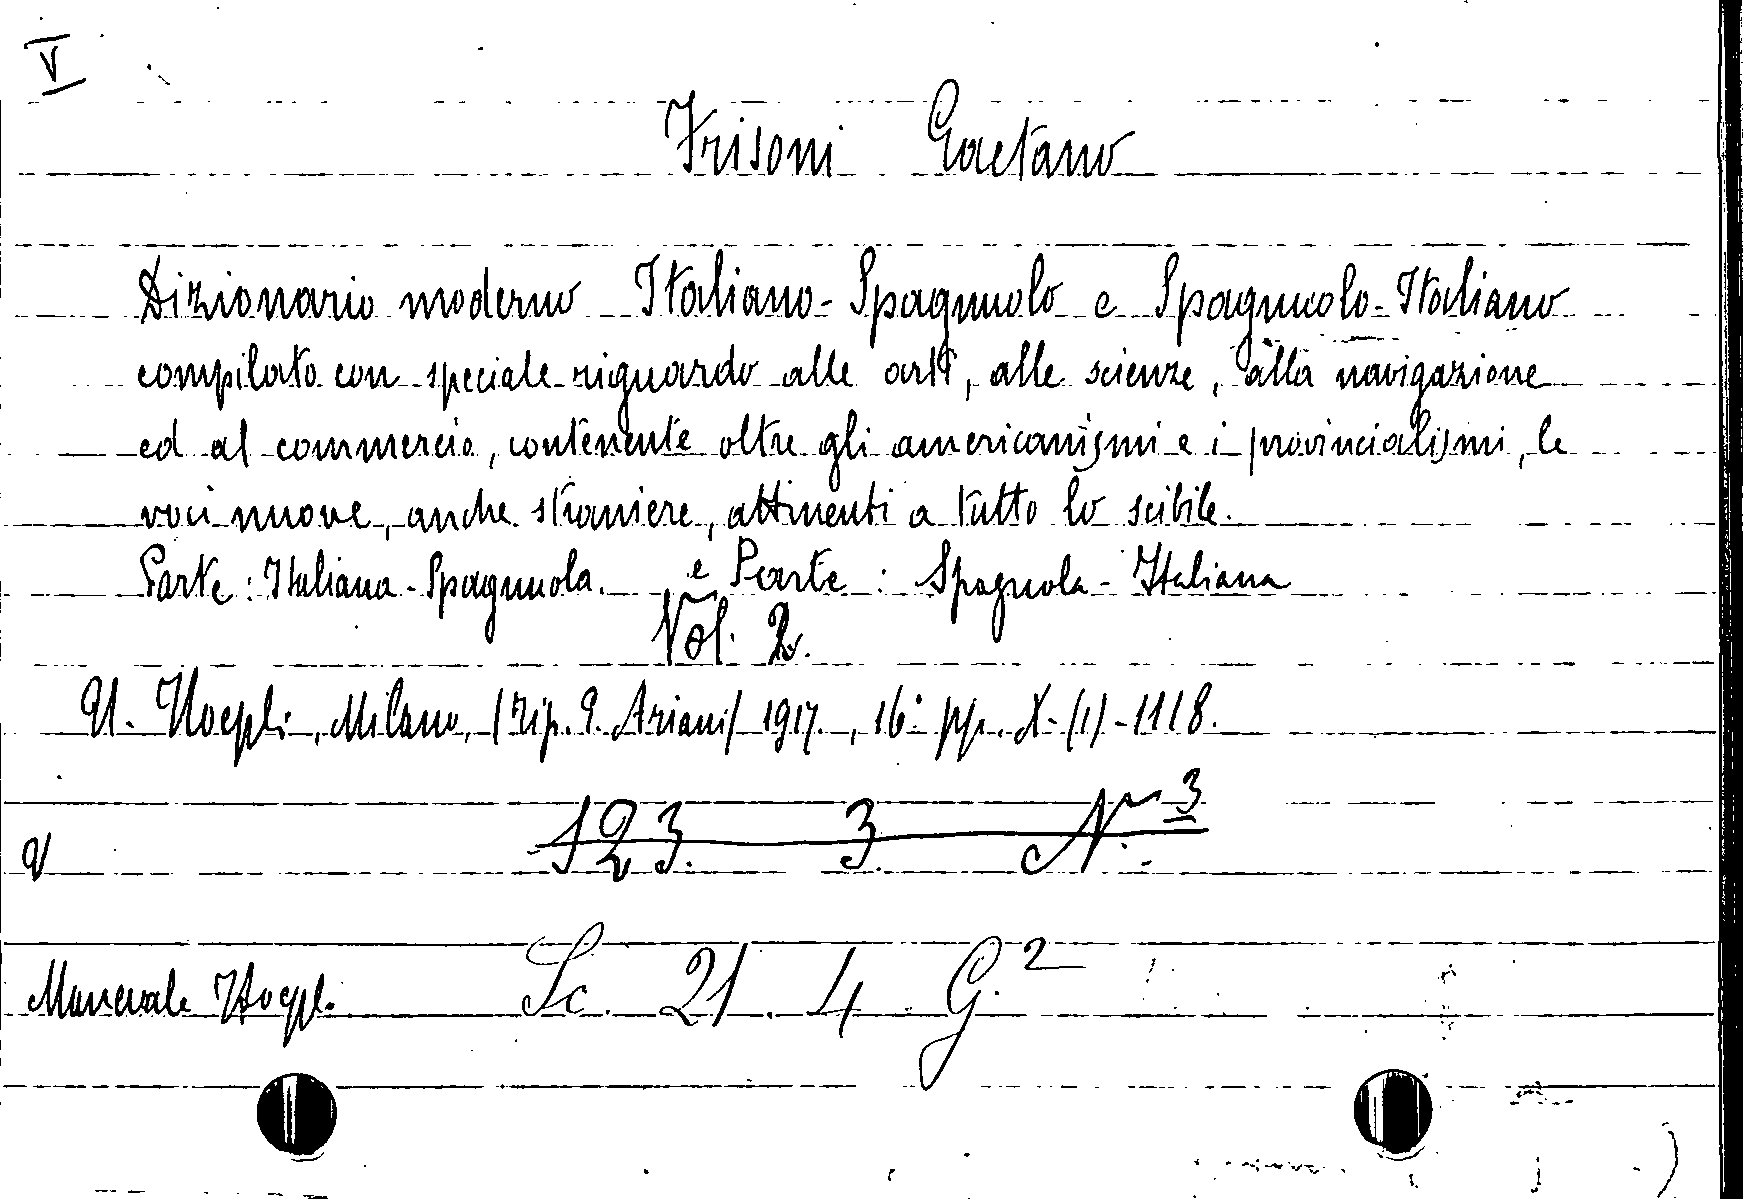 V
Frisoni Gaetano
Dizionario moderno Italiano-Spagnuolo e Spagnuolo-Italiano
compilato con speciale riguardo alle arti, alle scienze, alla navigazione
ed al commercio, contenente oltre gli americanismi e i provincialismi, le
voci nuove, anche straniere, attinenti a tutto lo scibile.
Parte: Italiana-Spagnuola. e Parte: Spagnola-Italiana
Vol. 2.
U. Hoepli, Milano, (Tip. G. Ariani) 1917., 16° pp. X-(1)-1118.
123. 3. N. 3
V
Manuale Hoepl. Sc. 21. 4 G.2